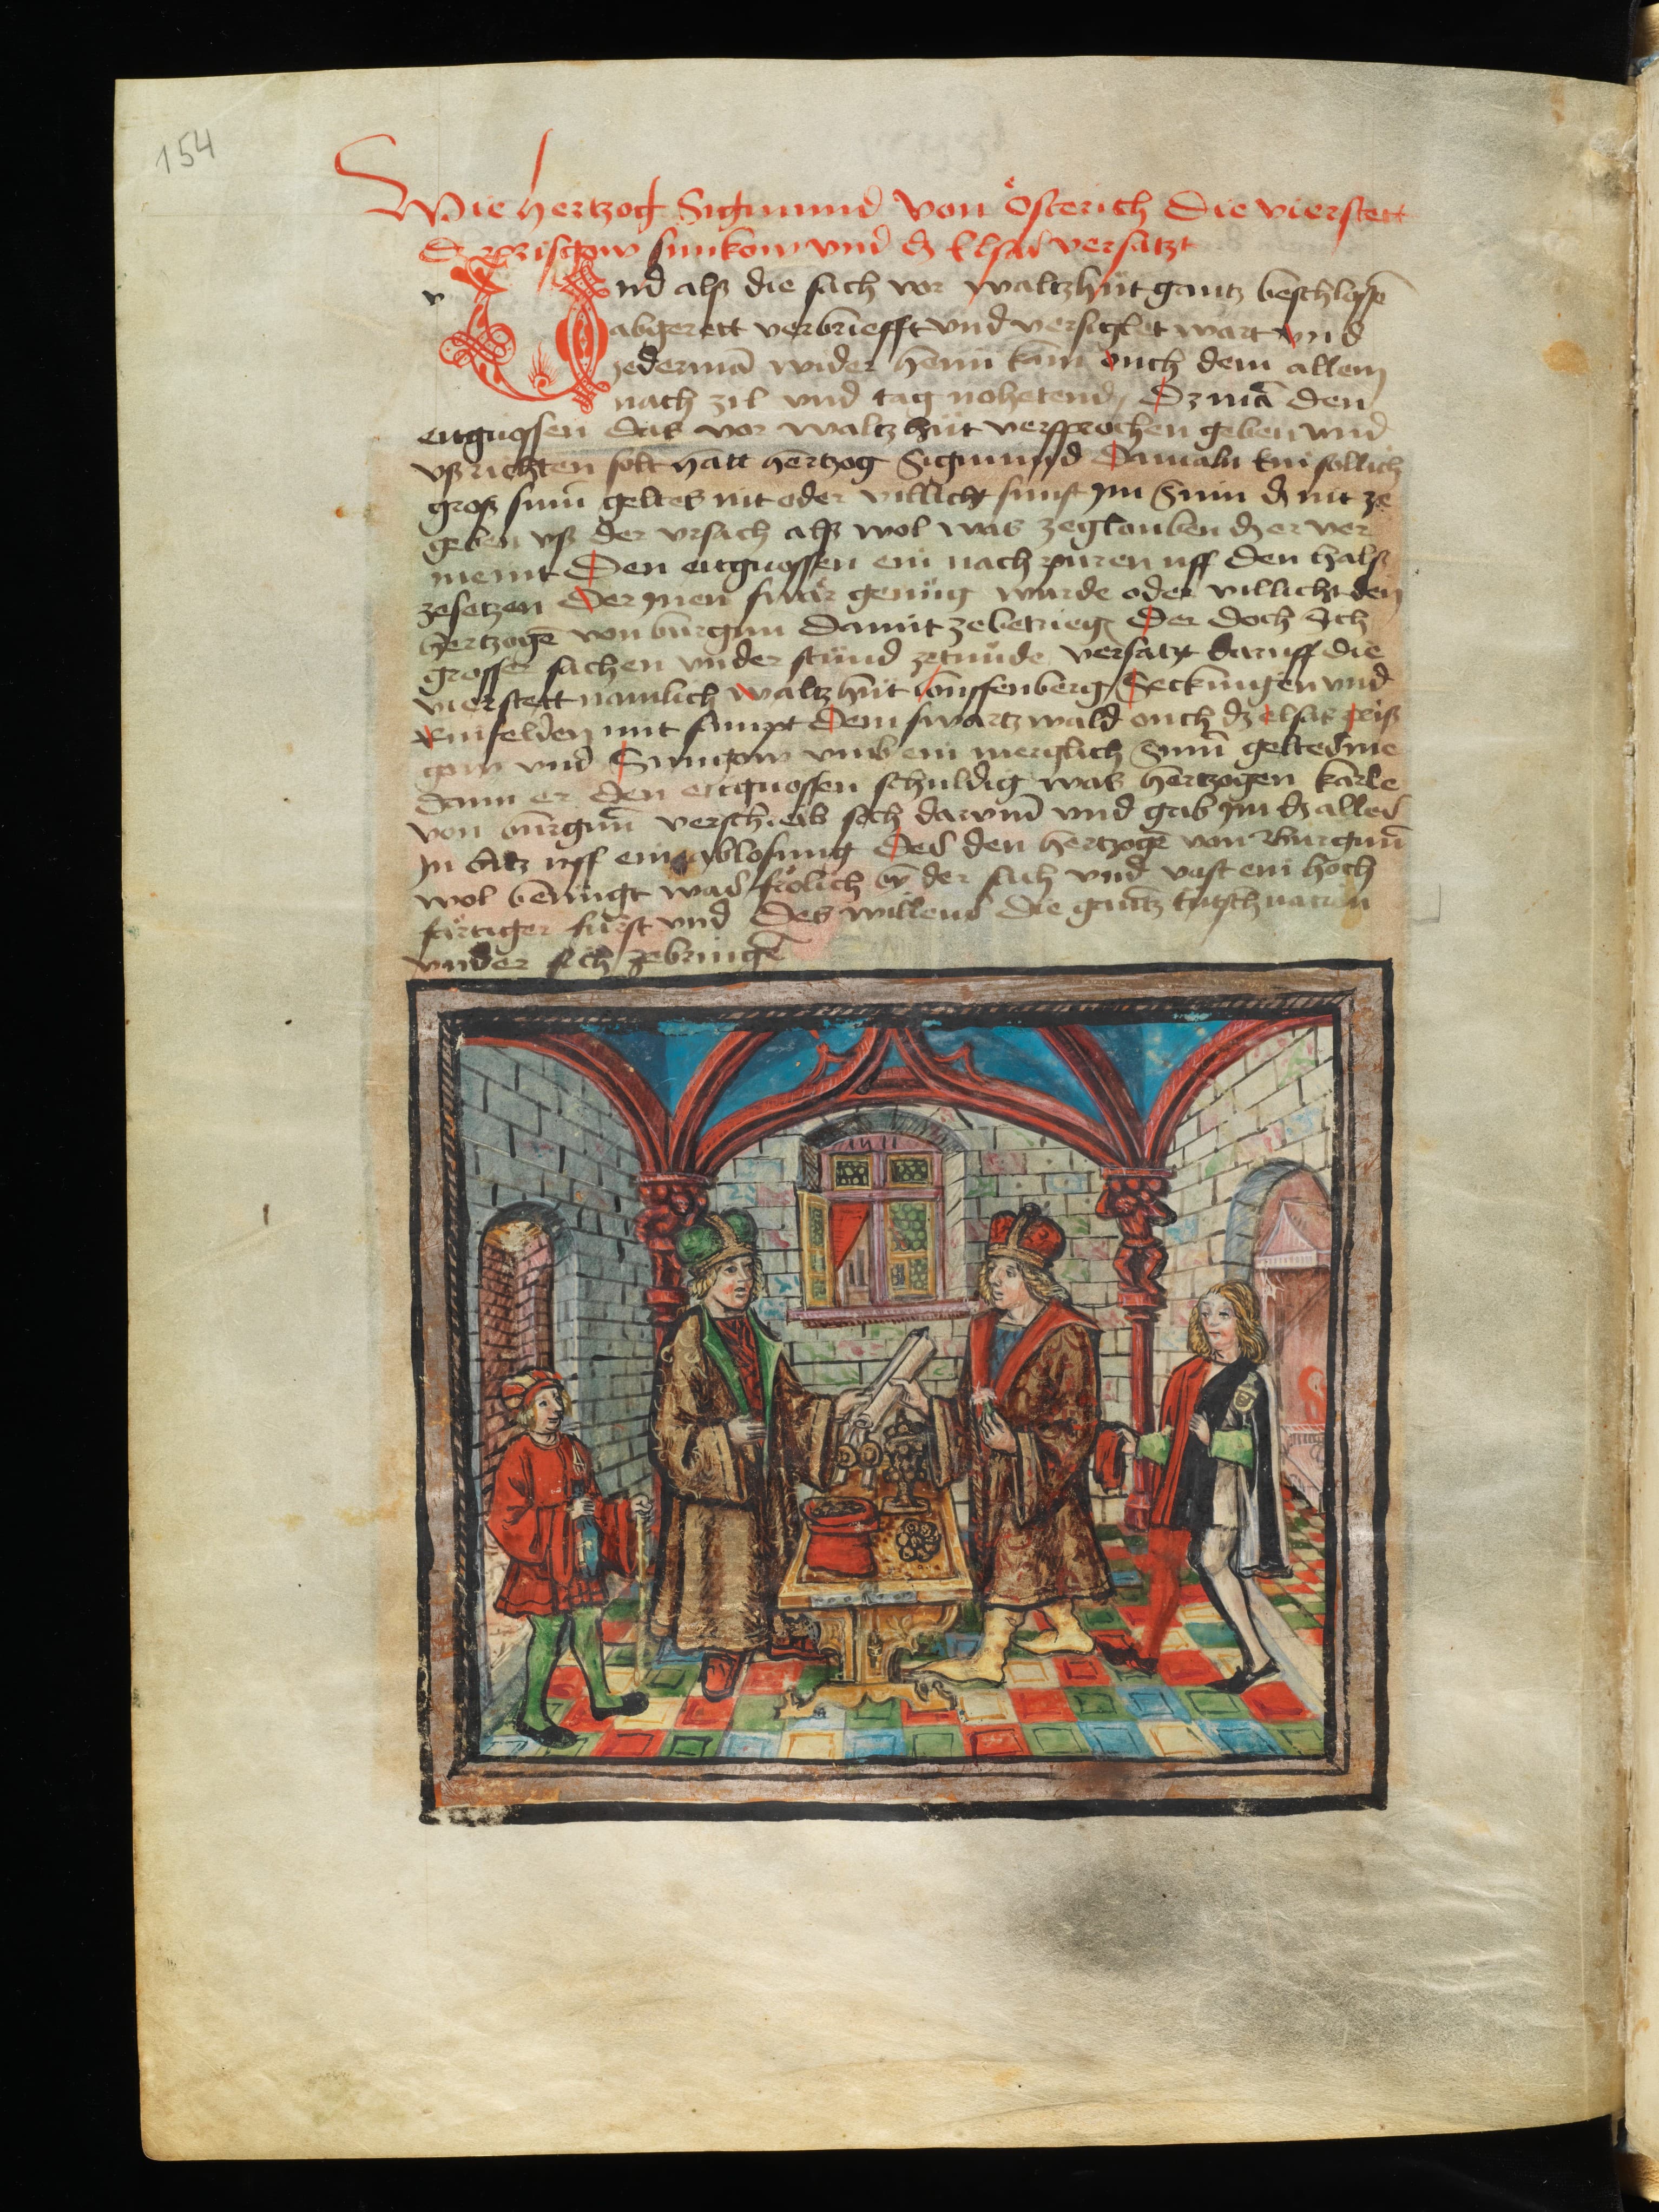 154
Wie hertzog Sigmund von Österich die vierstett
dz Brisgow sunkow und dz Elsas versatzt
Und alß die sach vor waltzhüt gantz beschlossē
abgerett verbriefft und versiglet wart und
jedermā wider heim kam ouch dem allem
nach zil und tag nohetend / Dz mā den
eitgnossen das vor waltzhüt versprochen geben und
vßrichten solt hatt hertzog Sigmund damaln kein sollich
groß sum geltes nit oder villicht sunst im Sinn dz nit ze
geben vß der vrsach alß wol was zeglouben dz er ver
meint Den eitgnossen ein nachpuren uff den halß
zesetzen Der jnen swär genüg wurde oder villicht den
hertzogē von burgun damit zebetriegē Der doch Sich
grosser sachen vnder stünd zetünde versatzt daruff die
vierstett namlich waltzhüt louffenberg Seckingen und
Rinfelden mit sampt dem swartzwald ouch dz elsas priß
gow und Suntgow umb ein merglich Sum̄ geltes me
dann er den eitgnossen schuldig was hertzogen karle
von burgun̄ verschreib sich darum̄ und gab im dz alles
in uff ein ablosung Des den hertzogē von Burgun̄
wol benügt was frölich by der sach und vast ein hoch
färtiger fürst und des willens die gantz tütsch nation
vnder sich zebringē